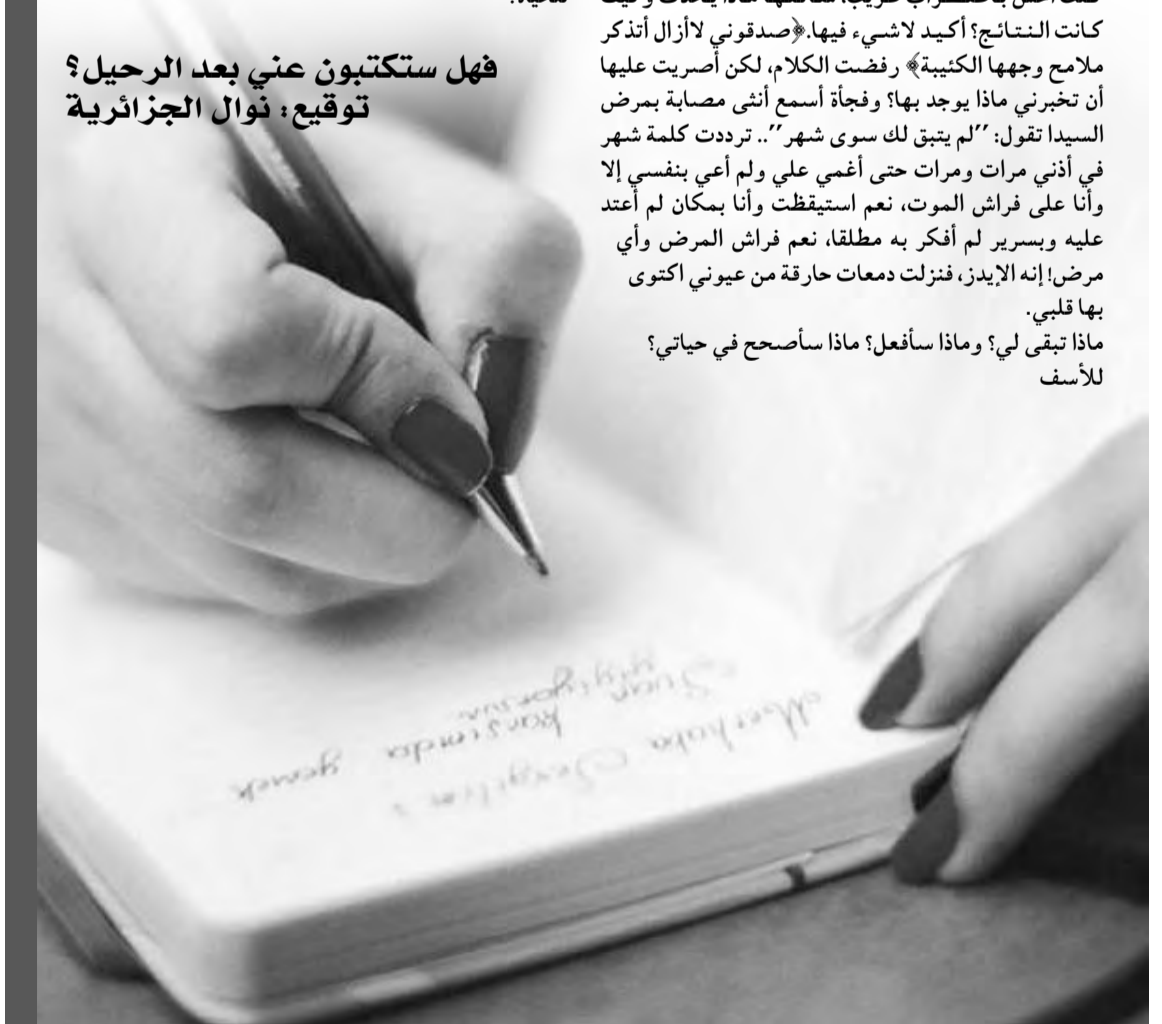 كانت النتائج؟ أكيد لاشيء فيها.﴿صدقوني لاأزال أتذكر
ملامح وجهها الكئيبة﴾ رفضت الكلام، لكن أصريت عليها
أن تخبرني ماذا يوجد بها؟ وفجأة أسمع أنثى مصابة بمرض
السيدا تقول: ’’لم يتبق لك سوى شهر’’.. ترددت كلمة شهر
في أذني مرات ومرات حتى أغمي علي ولم أعي بنفسي إلا
وأنا على فراش الموت، نعم استيقظت وأنا بمكان لم أعتد
عليه وبسرير لم أفكر به مطلقا، نعم فراش المرض وأي
مرض! إنه الإيدز، فنزلت دمعات حارقة من عيوني اكتوى
بها قلبي.
ماذا تبقى لي؟ وماذا سأفعل؟ ماذا سأصحح في حياتي؟
للأسف
فهل ستكتبون عني بعد الرحيل؟
توقيع: نوال الجزائرية
Merhaba Sevgilim
karşımda yemek
yiyiyorsun